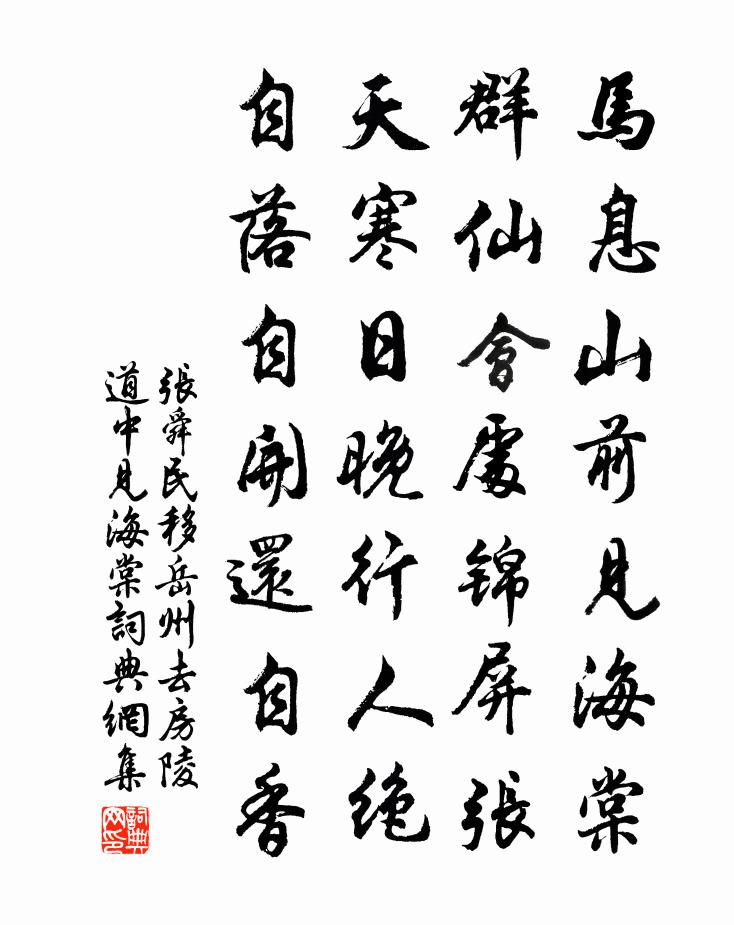 馬息山前見海棠
群仙會處錦屏張
天寒日晚行人绝
自落自開還自香
張舜民移岳州去房陵
道中見海棠詞典網集
詞典
网印